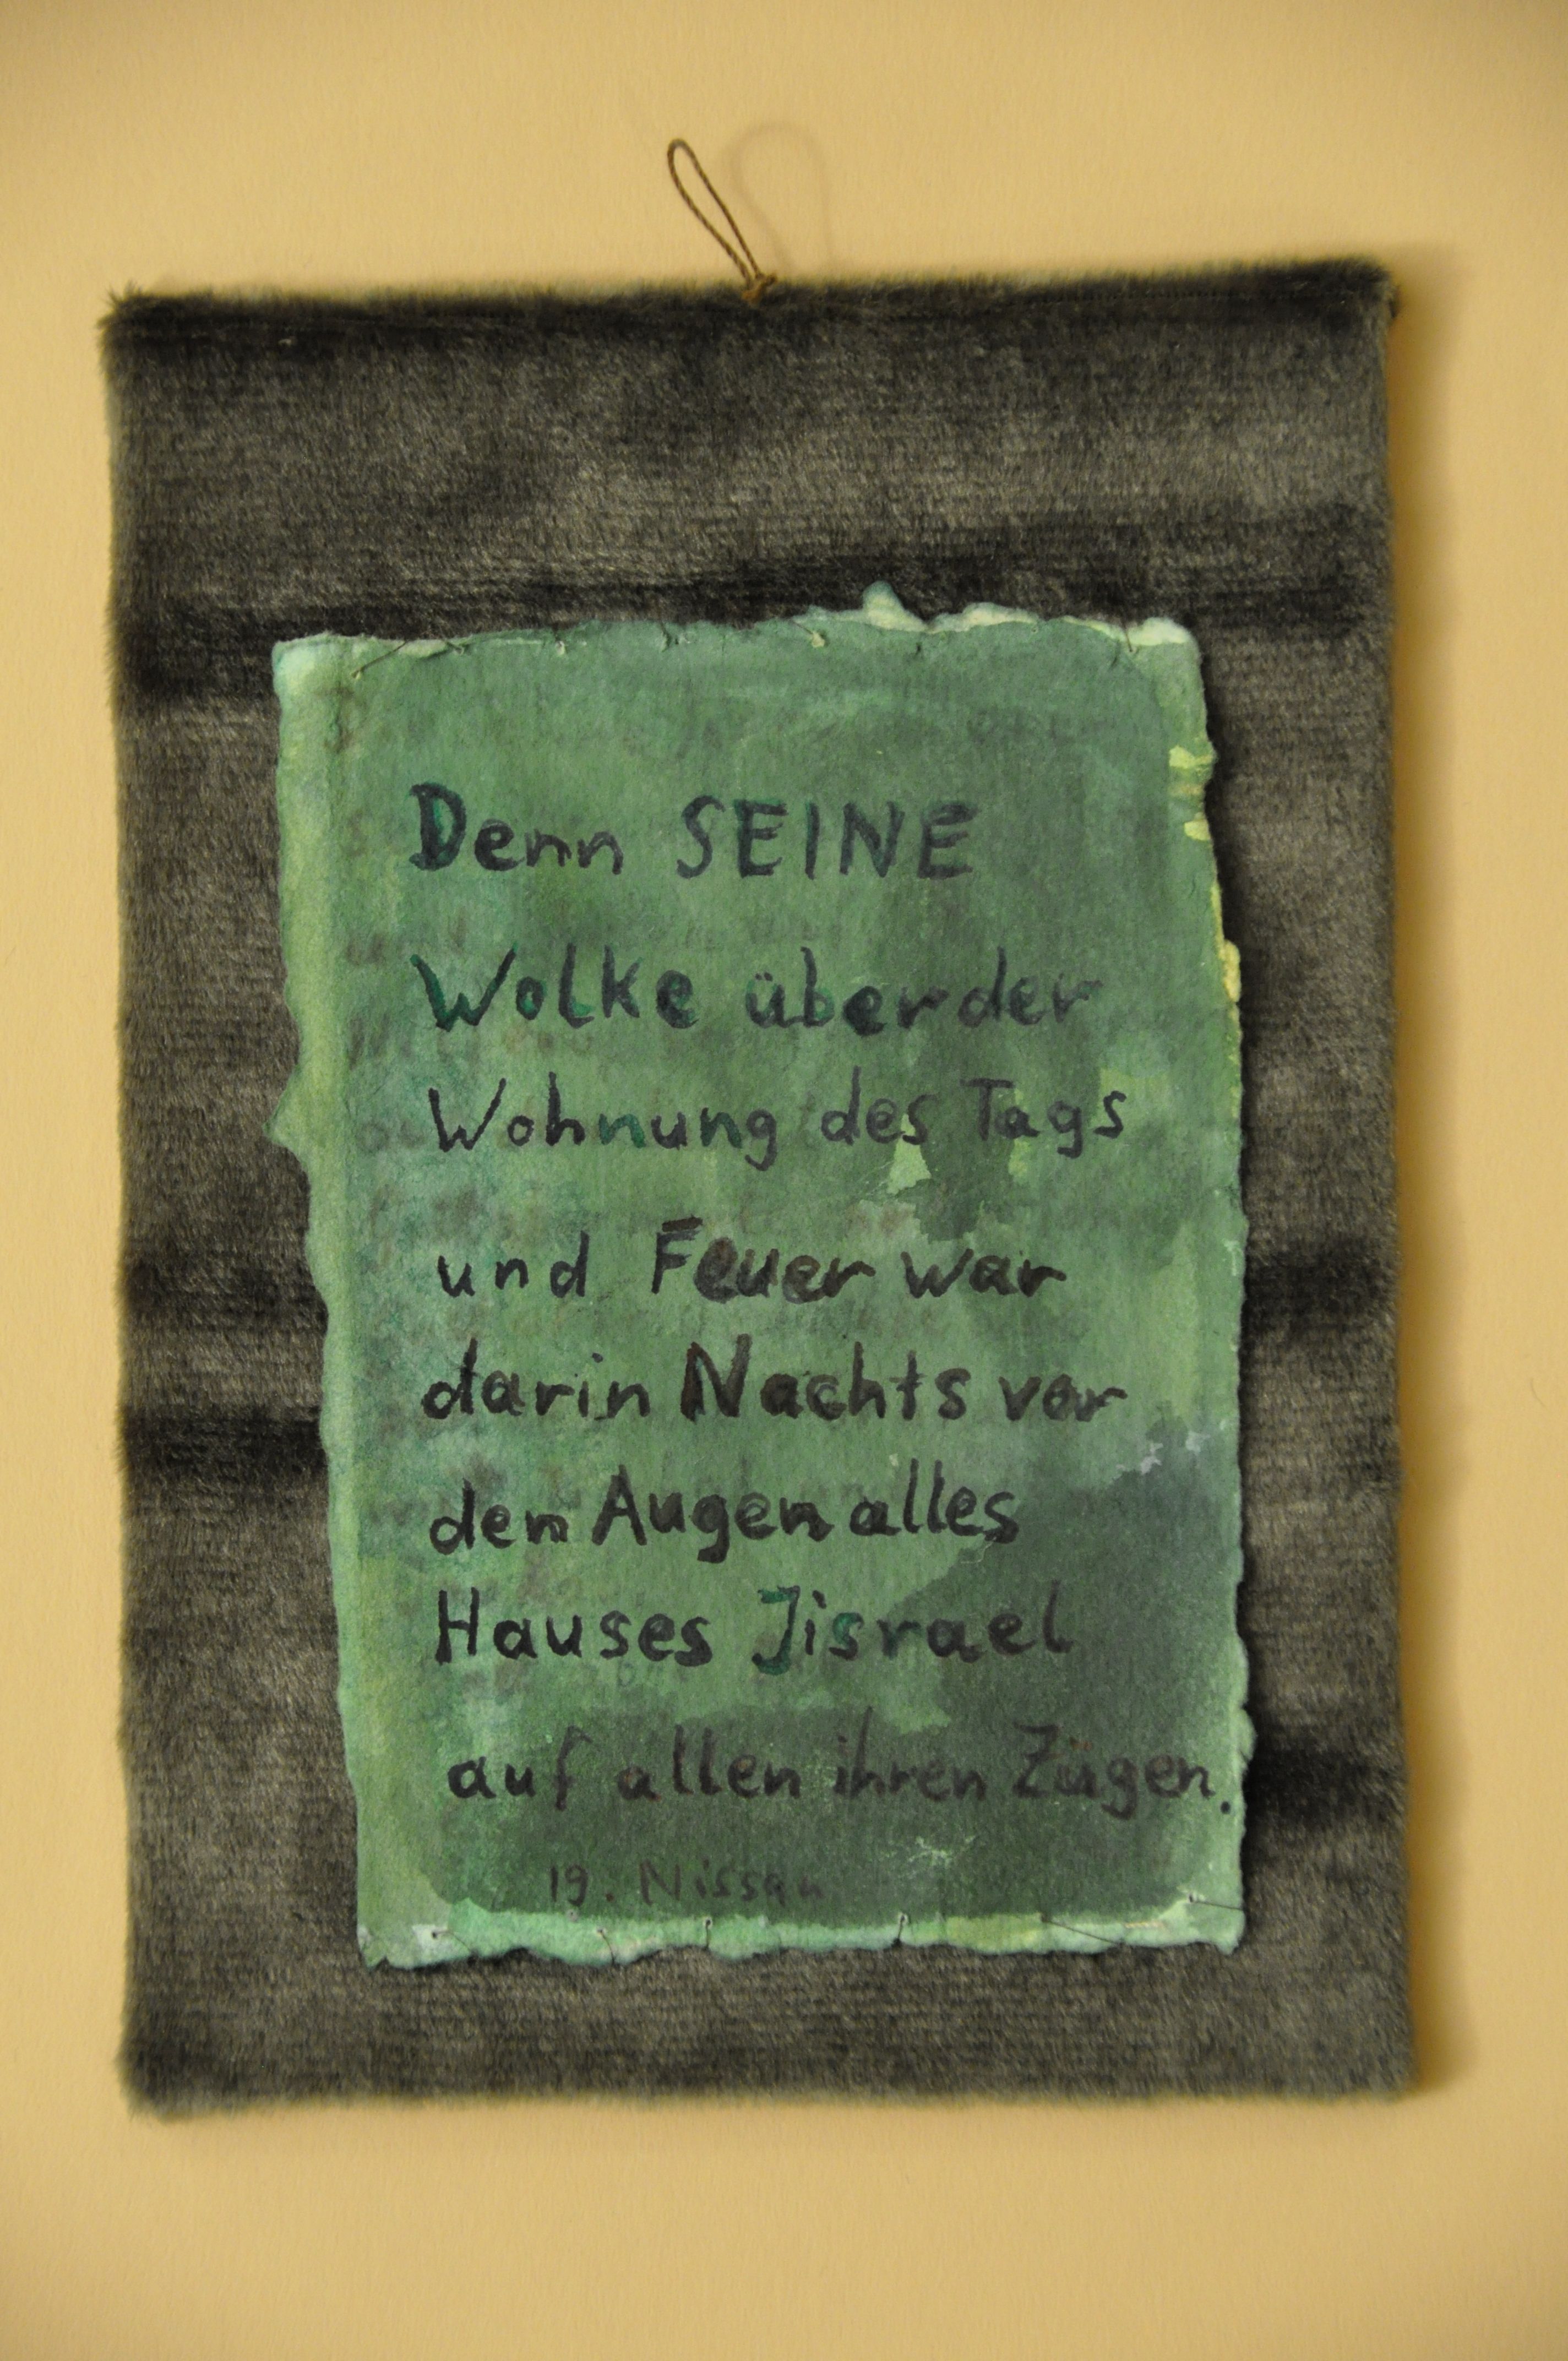 Denn SEINE
Wolke über der
Wohnung des Tags
und Feuer war
darin Nachts vor
den Augen alles
Hauses Jisrael
auf allen ihren Zügen.
19. Nissan